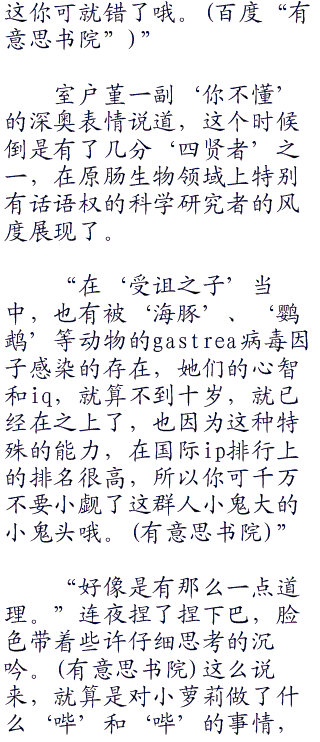 这你可就错了哦。(百度“有
意思书院”)”
室户堇一副‘你不懂’
的深奥表情说道，这个时候
倒是有了几分‘四贤者’之
一，在原肠生物领域上特别
有话语权的科学研究者的风
度展现了。
“在‘受诅之子’当
中，也有被‘海豚’、‘鹦
鹉’等动物的gastrea病毒因
子感染的存在，她们的心智
和iq，就算不到十岁，就已
经在之上了，也因为这种特
殊的能力，在国际ip排行上
的排名很高，所以你可千万
不要小觑了这群人小鬼大的
小鬼头哦。(有意思书院)”
“好像是有那么一点道
理。”连夜捏了捏下巴，脸
色带着些许仔细思考的沉
吟。(有意思书院)这么说
来，就算是对小萝莉做了什
么‘哔’和‘哔’的事情，